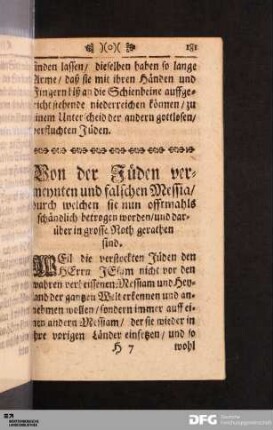 )o( 181
finden lassen/ dieselben haben so lange
Arme/ daß sie mit ihren Händen und
Fingern biß an die Schienbeine auffge-
richt stehende niederreichen können/ zu
einem Unterscheid der andern gottlosen/
verfluchten Jüden.
Von der Jüden ver-
meynten und falschen Messia/
durch welchen sie nun offtmahls
schändlich betrogen worden/ und dar-
über in grosse Noth gerathen
sind.
WEil die verstockten Jüden den
HErrn JEsum nicht vor den
wahren verheissenen Messiam und Hey-
land der gantzen Welt erkennen und an-
nehmen wollen/ sondern immer auff ei-
nen andern Messiam/ der sie wieder in
ihre vorigen Länder einsetzen/ und so
H 7 wohl
DFG Deutsche
Forschungsgemeinschaft